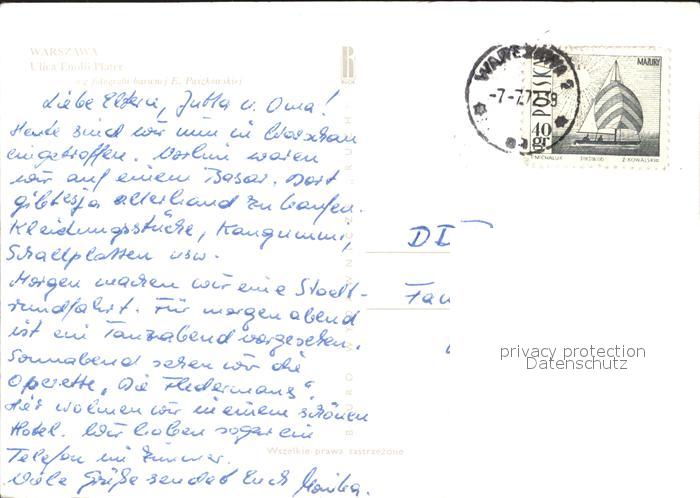 WARSZAWA
Ulica Emilii Plater
wg fotografii barwnej E. Paszkowskiej
Liebe Eltern, Jutta u. Oma!
Heute sind wir nun in Warschau
eingetroffen. Vorhin waren
wir auf einem Basar. Dort
gibt es ja allerhand zu kaufen.
Kleidungsstücke, Kaugummi,
Schallplatten usw.
Morgen machen wir eine Stadt-
rundfahrt. Für morgen abend
ist ein Tanzabend vorgesehen.
Sonnabend sehen wir die
Operette „Die Fledermaus“.
Hier wohnen wir in einem schönen
Hotel. Wir haben sogar ein
Telefon im Zimmer.
Viele Grüße sendet Euch Monika.
RUCH
BIURO WYDAWNICZE RUCH
Wszelkie prawa zastrzeżone
WARSZAWA 2
-7-7.72
MAZURY
POLSKA
40 gr
T. MICHALUK Z. KOWALSKI
DI
Fam
privacy protection
Datenschutz